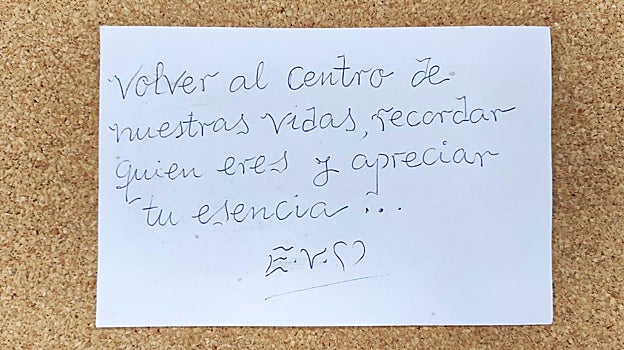 Volver al centro de
nuestras vidas, recordar
quien eres y apreciar
tu esencia ...
E.V.